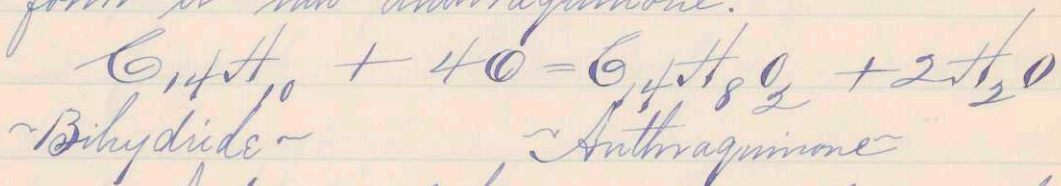 form it into anthraquinone.
C₁₄H₁₀ + 4O = C₁₄H₈O₂ + 2H₂O
~Bihydride~ ~Anthraquinone~